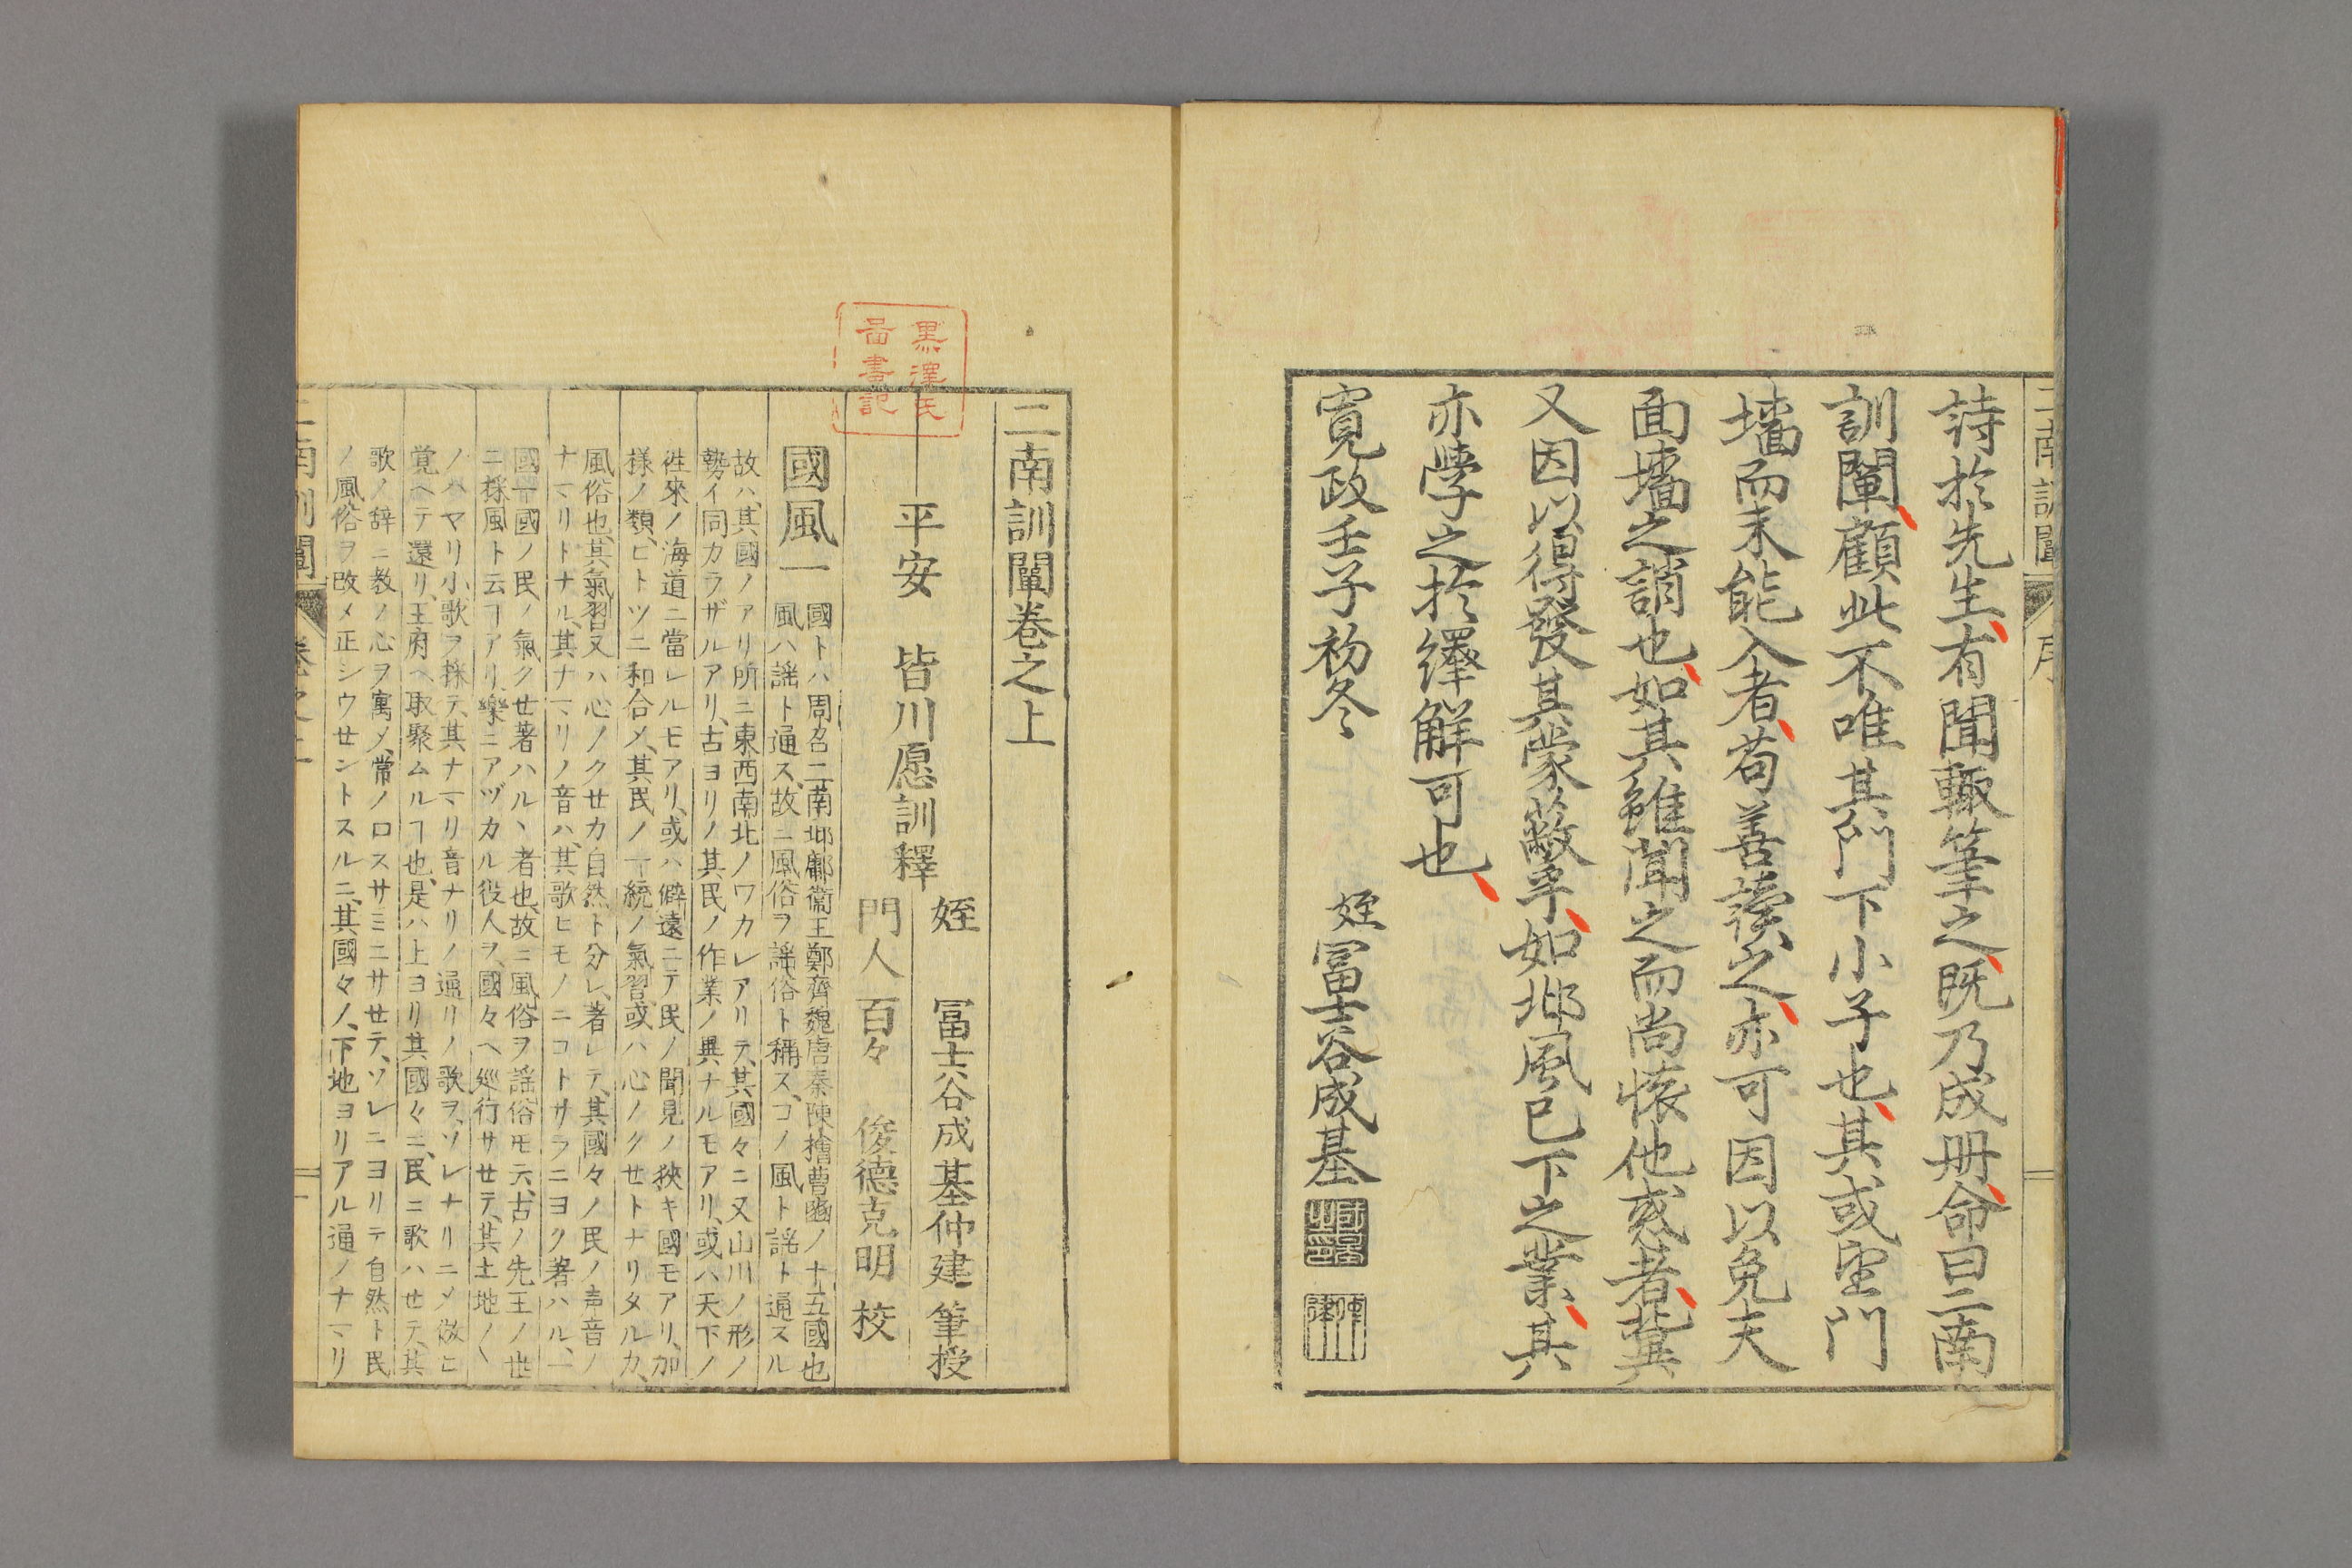 詩於先生、有聞輙筆之、既乃成册、命曰二南
訓闡、顧此不唯其門下小子也、其或望門
墻而未能入者、苟善讀之、亦可因以免夫
面墻之誚也、如其雖聞之而尚懐他惑者、冀
又因以得發其蒙蔽乎、如邶風已下之業、其
亦學之於繹解可也、
寛政壬子初冬
姪冨士谷成基
二南訓闡
序
黒澤氏
啚書記
二南訓闡卷之上
平安 皆川愿訓釋
姪 冨士谷成基仲建 筆授
門人 百々 俊德克明 校
國風一
國トハ周召二南邶鄘衞王鄭齊魏唐秦陳檜曹豳ノ十五國也
風ハ謡ト通ス、故ニ風俗ヲ謡俗ト稱ス、コノ風ト謡ト通スル
故ハ、其國ノアリ所ニ東西南北ノワカレアリテ、其國々ニ又山川ノ形ノ
勢イ同カラザルアリ、古ヨリノ其民ノ作業ノ異ナルモアリ、或ハ天下ノ
徃來ノ海道ニ當レルモアリ、或ハ僻遠ニテ民ノ聞見ノ狹キ國モアリ、加
様ノ類、ヒトツニ和合〆、其民ノ一統ノ氣習、或ハ心ノクセトナリタルカ、
風俗也、其氣習又ハ心ノクセカ自然ト分レ、著レテ、其國々ノ民ノ声音ノ
ナマリトナル、其ナマリノ音ハ、其歌ヒモノニコトサラニヨク著ハル、一
國一國ノ民ノ氣クセ著ハルヽ者也、故ニ風俗ヲ謡俗モ云、古ノ先王ノ世
ニ採風ト云ヿアリ、樂ニアヅカル役人ヲ、國々ヘ巡行サセテ、其土地ノ〱
ノハヤリ小歌ヲ採テ、其ナマリ音ナリノ通リノ歌ヲ、ソレナリニ〆倣ヒ
覚ヘテ還リ、王府ヘ取聚ムルヿ也、是ハ上ヨリ其國々ニ、民ニ歌ハセテ、其
歌ノ辞ニ教ノ心ヲ寓〆、常ノロスサミニサセテ、ソレニヨリテ自然ト民
ノ風俗ヲ改メ正シウセントスルニ、其國々ノ、下地ヨリアル通ノナマリ